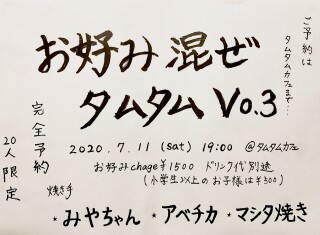 お好み混ぜ
タムタム Vo.3
2020.7.11 (sat) 19:00 @タムタムカフェ
お好みchage¥1500 ドリンク代別途
(小学生以上のお子様は¥500)
焼き手
★みやちゃん ★アベチカ ★マシタ焼き
ご予約は
タムタムカフェまで…
完全予約
20人限定